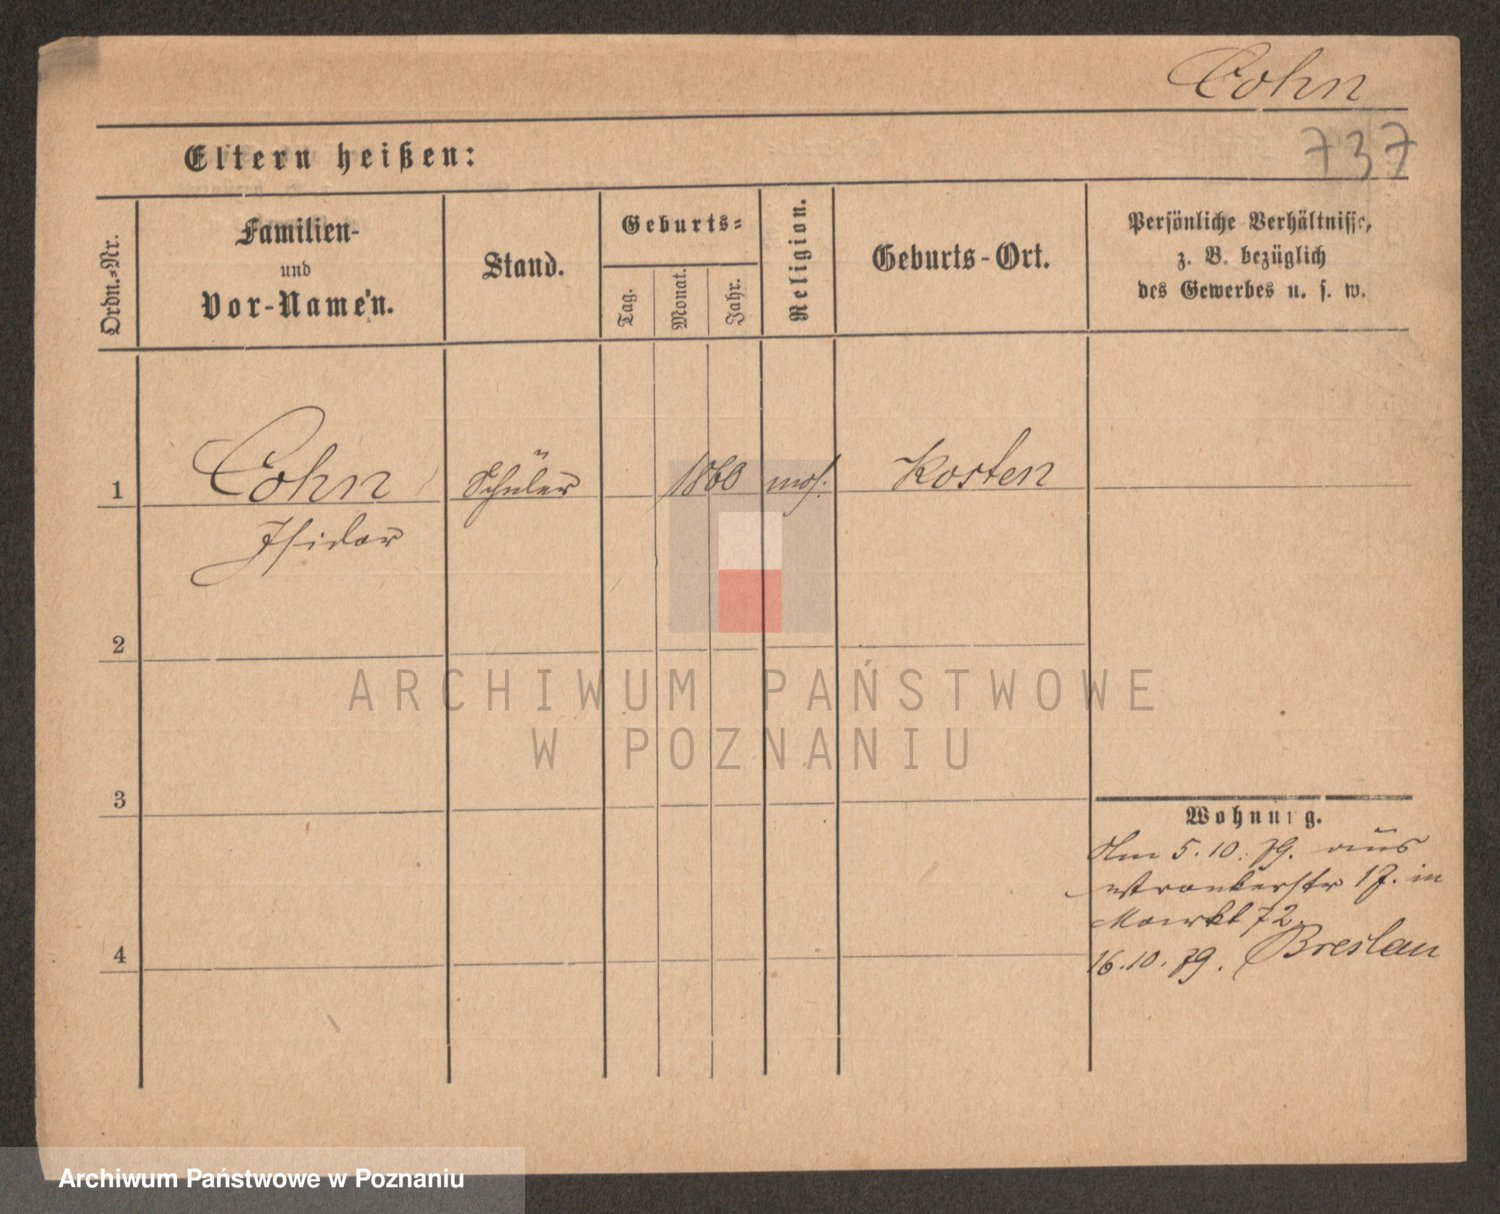 Cohn
737
Eltern heißen:
Ordn.-Nr.
Familien-
und
Vor-Namen.
Stand.
Geburts-
Tag.
Monat.
Jahr.
Religion.
Geburts-Ort.
Persönliche Verhältnisse,
z. B. bezüglich
des Gewerbes u. s. w.
1 Cohn Schüler 1860 mos. Kosten
Isidor
2
ARCHIWUM PAŃSTWOWE
W POZNANIU
3
Wohnung.
Um 5.10.79. aus
Wronkerstr 17. in
Markt 72.
4
16.10.79. Breslau
Archiwum Państwowe w Poznaniu